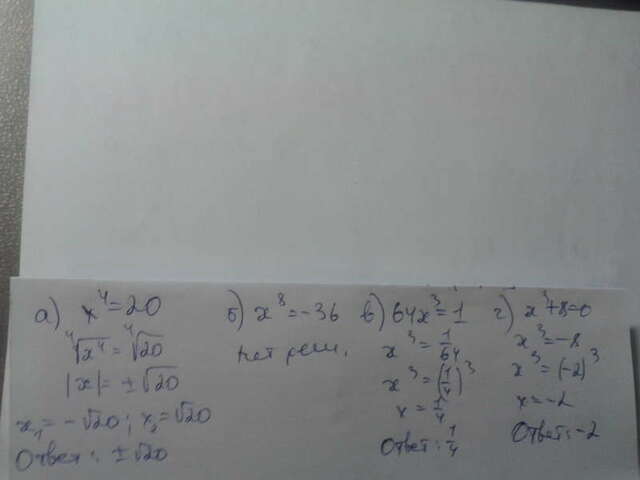 а) x⁴=20
⁴√x⁴=⁴√20
|x|=±√20
x₁=-√20; x₂=√20
Ответ: ±√20
б) x⁸=-36
нет реш.
в) 64x³=1
x³=1/64
x³=(1/4)³
x=1/4
Ответ: 1/4
г) x³+8=0
x³=-8
x³=(-2)³
x=-2
Ответ: -2